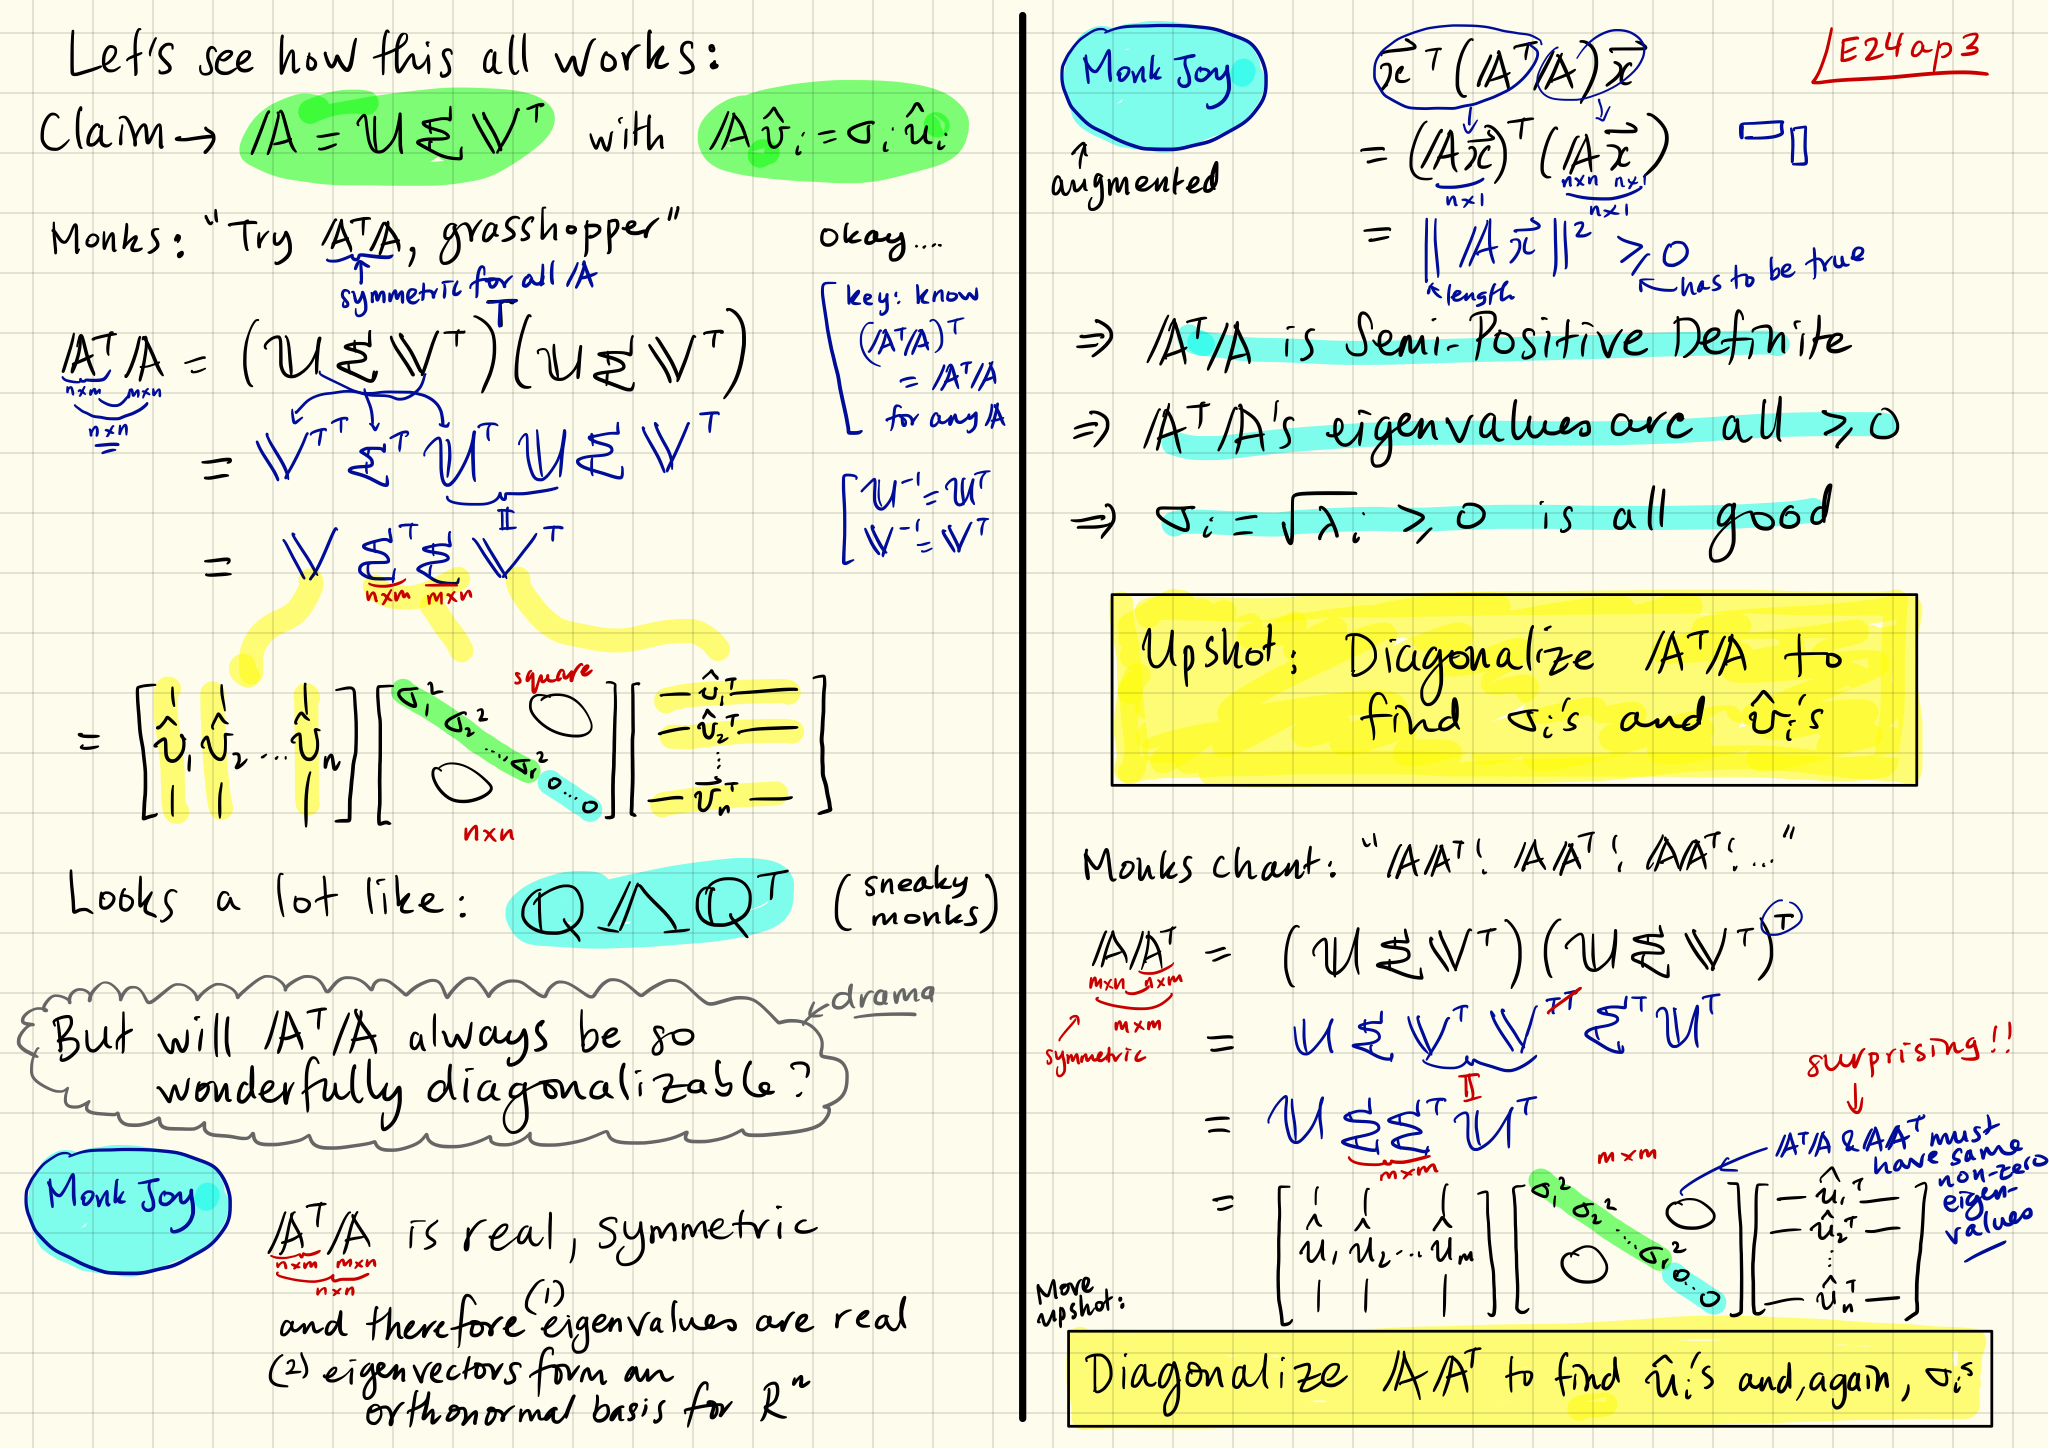 Let's see how this all works:
Claim → A = U Σ V^T with A v̂_i = σ_i û_i
Monks: "Try A^T A, grasshopper" okay....
symmetric for all A
[key: know
(A^T A)^T
= A^T A
for any A
A^T A = (U Σ V^T)^T (U Σ V^T)
n×m m×n
n×n
= V^TT Σ^T U^T U Σ V^T
I
[U^-1 = U^T
V^-1 = V^T
= V Σ^T Σ V^T
n×m m×n
square
= [v̂_1 v̂_2 ... v̂_n] [σ_1^2 σ_2^2 ... σ_1^2 0 ... 0] [— v̂_1^T — — v̂_2^T — ⋮ — v⃗_n^T —]
n×n
Looks a lot like: Q Λ Q^T (sneaky
monks)
drama
But will A^T A always be so
wonderfully diagonalizable?
Monk Joy
A^T A is real, symmetric
n×m m×n
n×n
and therefore (1) eigenvalues are real
(2) eigenvectors form an
orthonormal basis for R^n
E24ap3
Monk Joy
augmented
x⃗^T (A^T A) x⃗
= (A x⃗)^T (A x⃗)
n×1 n×n n×1
n×1
= ||A x⃗||^2 ≥ 0
length has to be true
⇒ A^T A is Semi-Positive Definite
⇒ A^T A's eigenvalues are all ≥ 0
⇒ σ_i = √λ_i ≥ 0 is all good
Upshot: Diagonalize A^T A to
find σ_i's and v̂_i's
Monks chant: "AA^T! AA^T! AA^T!..."
AA^T = (U Σ V^T)(U Σ V^T)^T
m×n n×m
m×m
symmetric
= U Σ V^T V^TT Σ^T U^T
I
surprising!!
= U Σ Σ^T U^T
m×m
A^T A & AA^T must
have same
non-zero
eigen-
values
m×m
= [û_1 û_2 ... û_m] [σ_1^2 σ_2^2 ... σ_1^2 0 ... 0] [— û_1^T — — û_2^T — ⋮ — û_n^T —]
More
upshot:
Diagonalize AA^T to find û_i's and, again, σ_i's